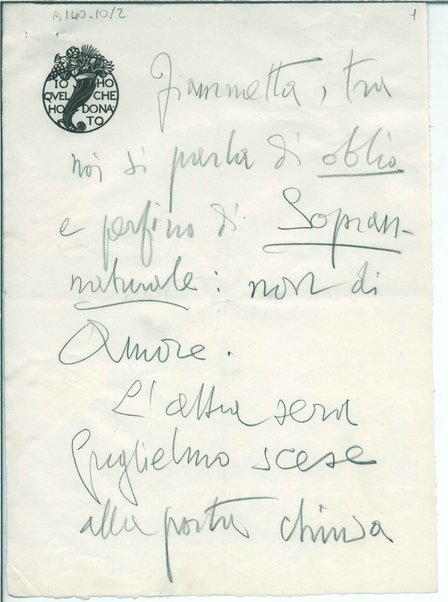 A.140.10/2
1
IO HO
QVEL CHE
HO DONA
TO
Fiammetta, tra
noi si parla di oblio
e perfino di Sopran-
naturale: non di
Amore.
L'altra sera
Guglielmo scese
alla porta chiusa